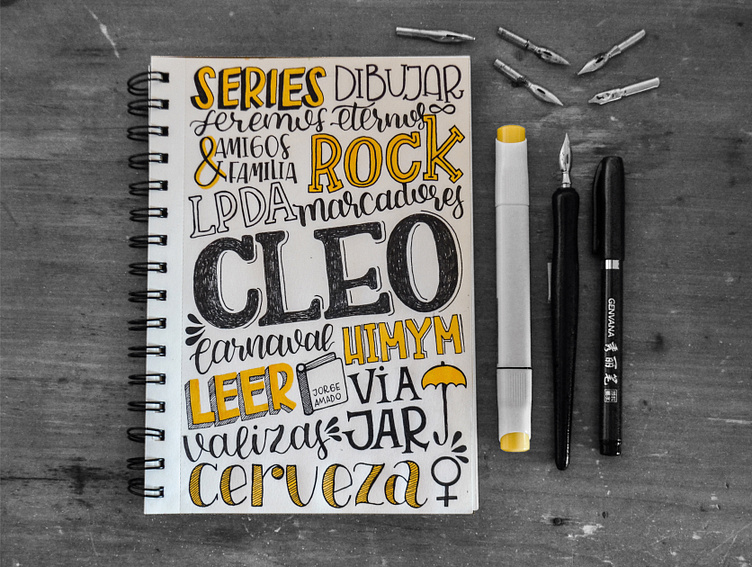 SERIES DIBUJAR
seremos eternos
& AMIGOS
FAMILIA
ROCK
LPDA marcadores
CLEO
Carnaval HIMYM
LEER
JORGE
AMADO
VIA
JAR
valizas
cerveza
GENVANA 秀丽笔